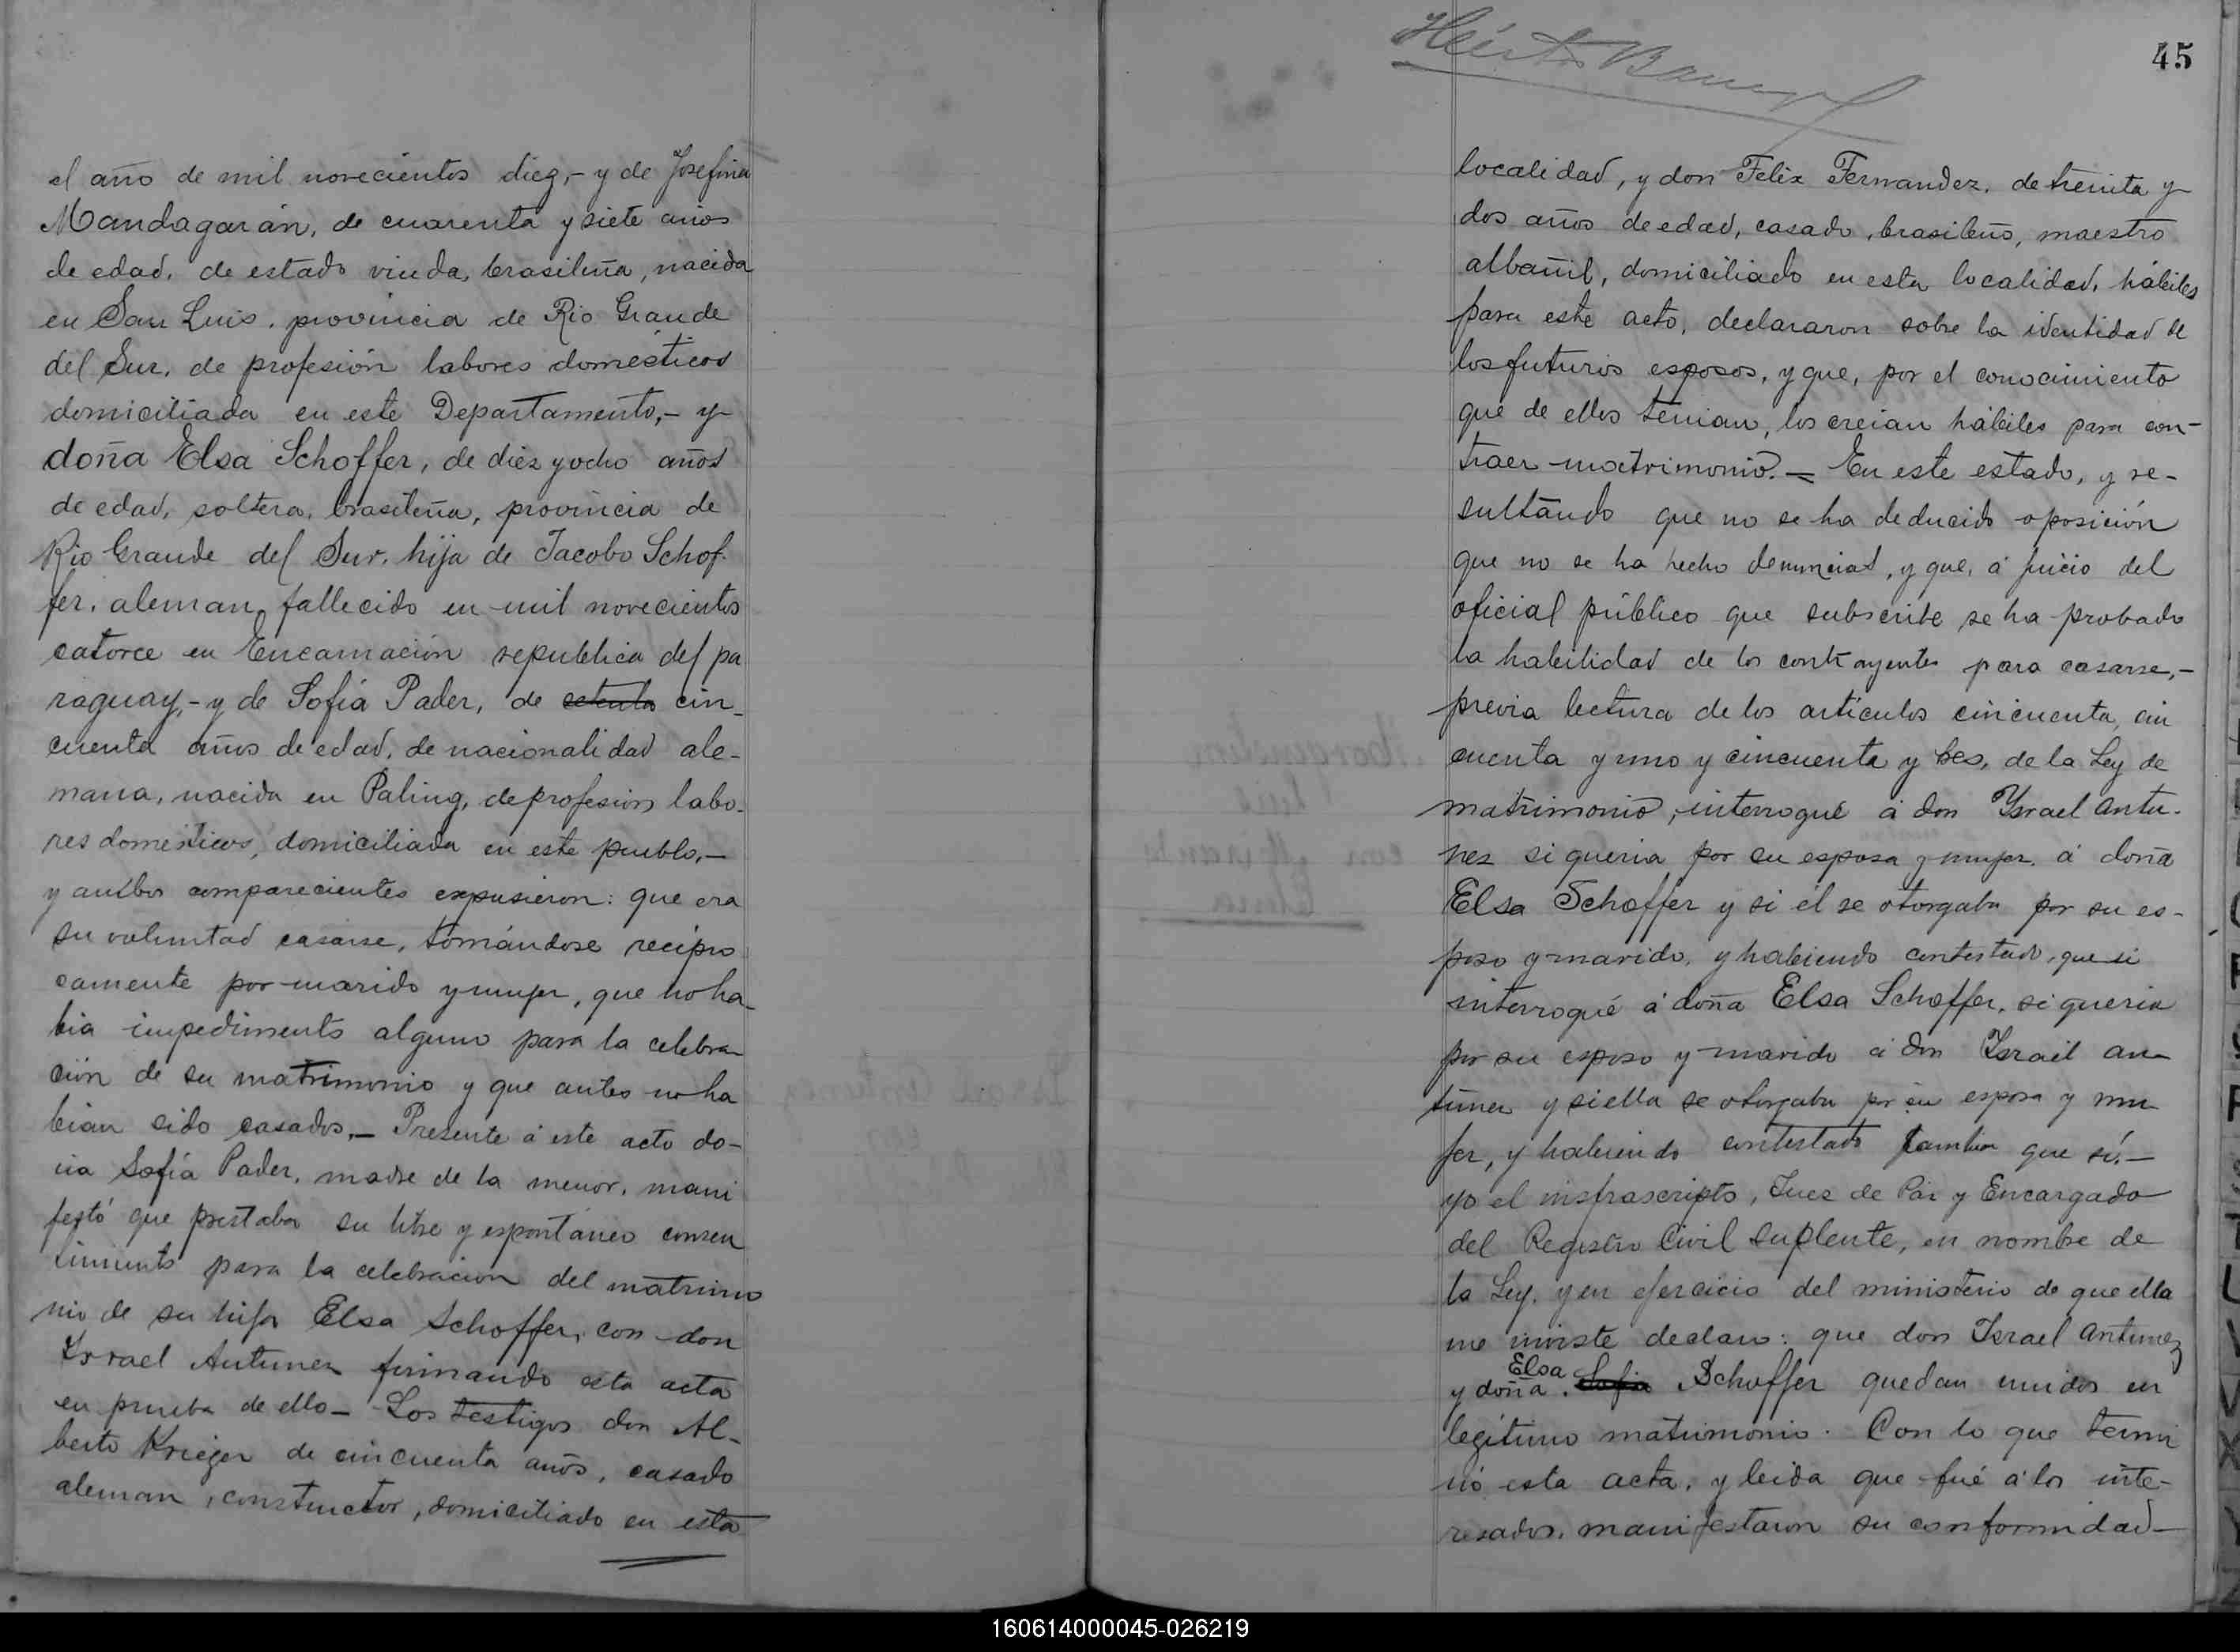 el año de mil novecientos diez,- y de Josefina
Mandagarán, de cuarenta y siete años
de edad, de estado viuda, brasileña, nacida
en San Luis, provincia de Rio Grande
del Sur, de profesión labores domésticos
domiciliada en este Departamento,- y
doña Elsa Schoffer, de diez y ocho años
de edad, soltera, brasileña, provincia de
Rio Grande del Sur, hija de Jacobo Schof-
fer, aleman, fallecido en mil novecientos
catorce en Encarnación republica del pa
raguay,- y de Sofía Pader, de setenta cin-
cuenta años de edad, de nacionalidad ale-
mana, nacida en Paling, de profesion labo-
res domésticos, domiciliada en este pueblo,-
y ambos comparecientes expusieron: que era
su voluntad casarse, tomándose recipro
camente por marido y mujer, que no ha
bia impedimento alguno para la celebra
ción de su matrimonio y que antes no ha
bian sido casados.- Presente á este acto do-
ña Sofía Pader, madre de la menor, mani
festó que prestaba su libre y espontáneo consen
timiento para la celebracion del matrimo
nio de su hija Elsa Schoffer, con don
Israel Antunez firmando esta acta
en prueba de ello- Los testigos don Al-
berto Krieger de cincuenta años, casado
aleman, constructor, domiciliado en esta
45
localidad, y don Felix Fernandez, de treinta y
dos años de edad, casado, brasileño, maestro
albañil, domiciliado en esta localidad, hábiles
para este acto, declararon sobre la identidad de
los futuros esposos, y que, por el conocimiento
que de ellos tenian, los creian hábiles para con-
traer matrimonio.- En este estado, y re-
sultando que no se ha deducido oposición
que no se ha hecho denuncias, y que, á juicio del
oficial público que subscribe se ha probado
la habilidad de los contrayentes para casarse,-
previa lectura de los artículos cincuenta, cin
cuenta y uno y cincuenta y tres, de la Ley de
matrimonio, interrogué á don Ysrael Antu-
nez si queria por su esposa y mujer, á doña
Elsa Schoffer y si él se otorgaba por su es-
poso y marido, y habiendo contestado, que si
interrogué á doña Elsa Schoffer, si queria
por su esposo y marido á don Israel An
tunez y si ella se otorgaba por su esposa y mu
jer, y habiendo contestado tambien que sí.-
yo el infrascripto, Juez de Paz y Encargado
del Registro Civil Suplente, en nombre de
la Ley, y en ejercicio del ministerio de que ella
me inviste declaro: que don Israel Antunez
Elsa
y doña Sofia Schoffer quedan unidos en
legítimo matrimonio. Con lo que termi
nó esta acta, y leida que fué á los inte-
resados, manifestaron su conformidad-
160614000045-026219